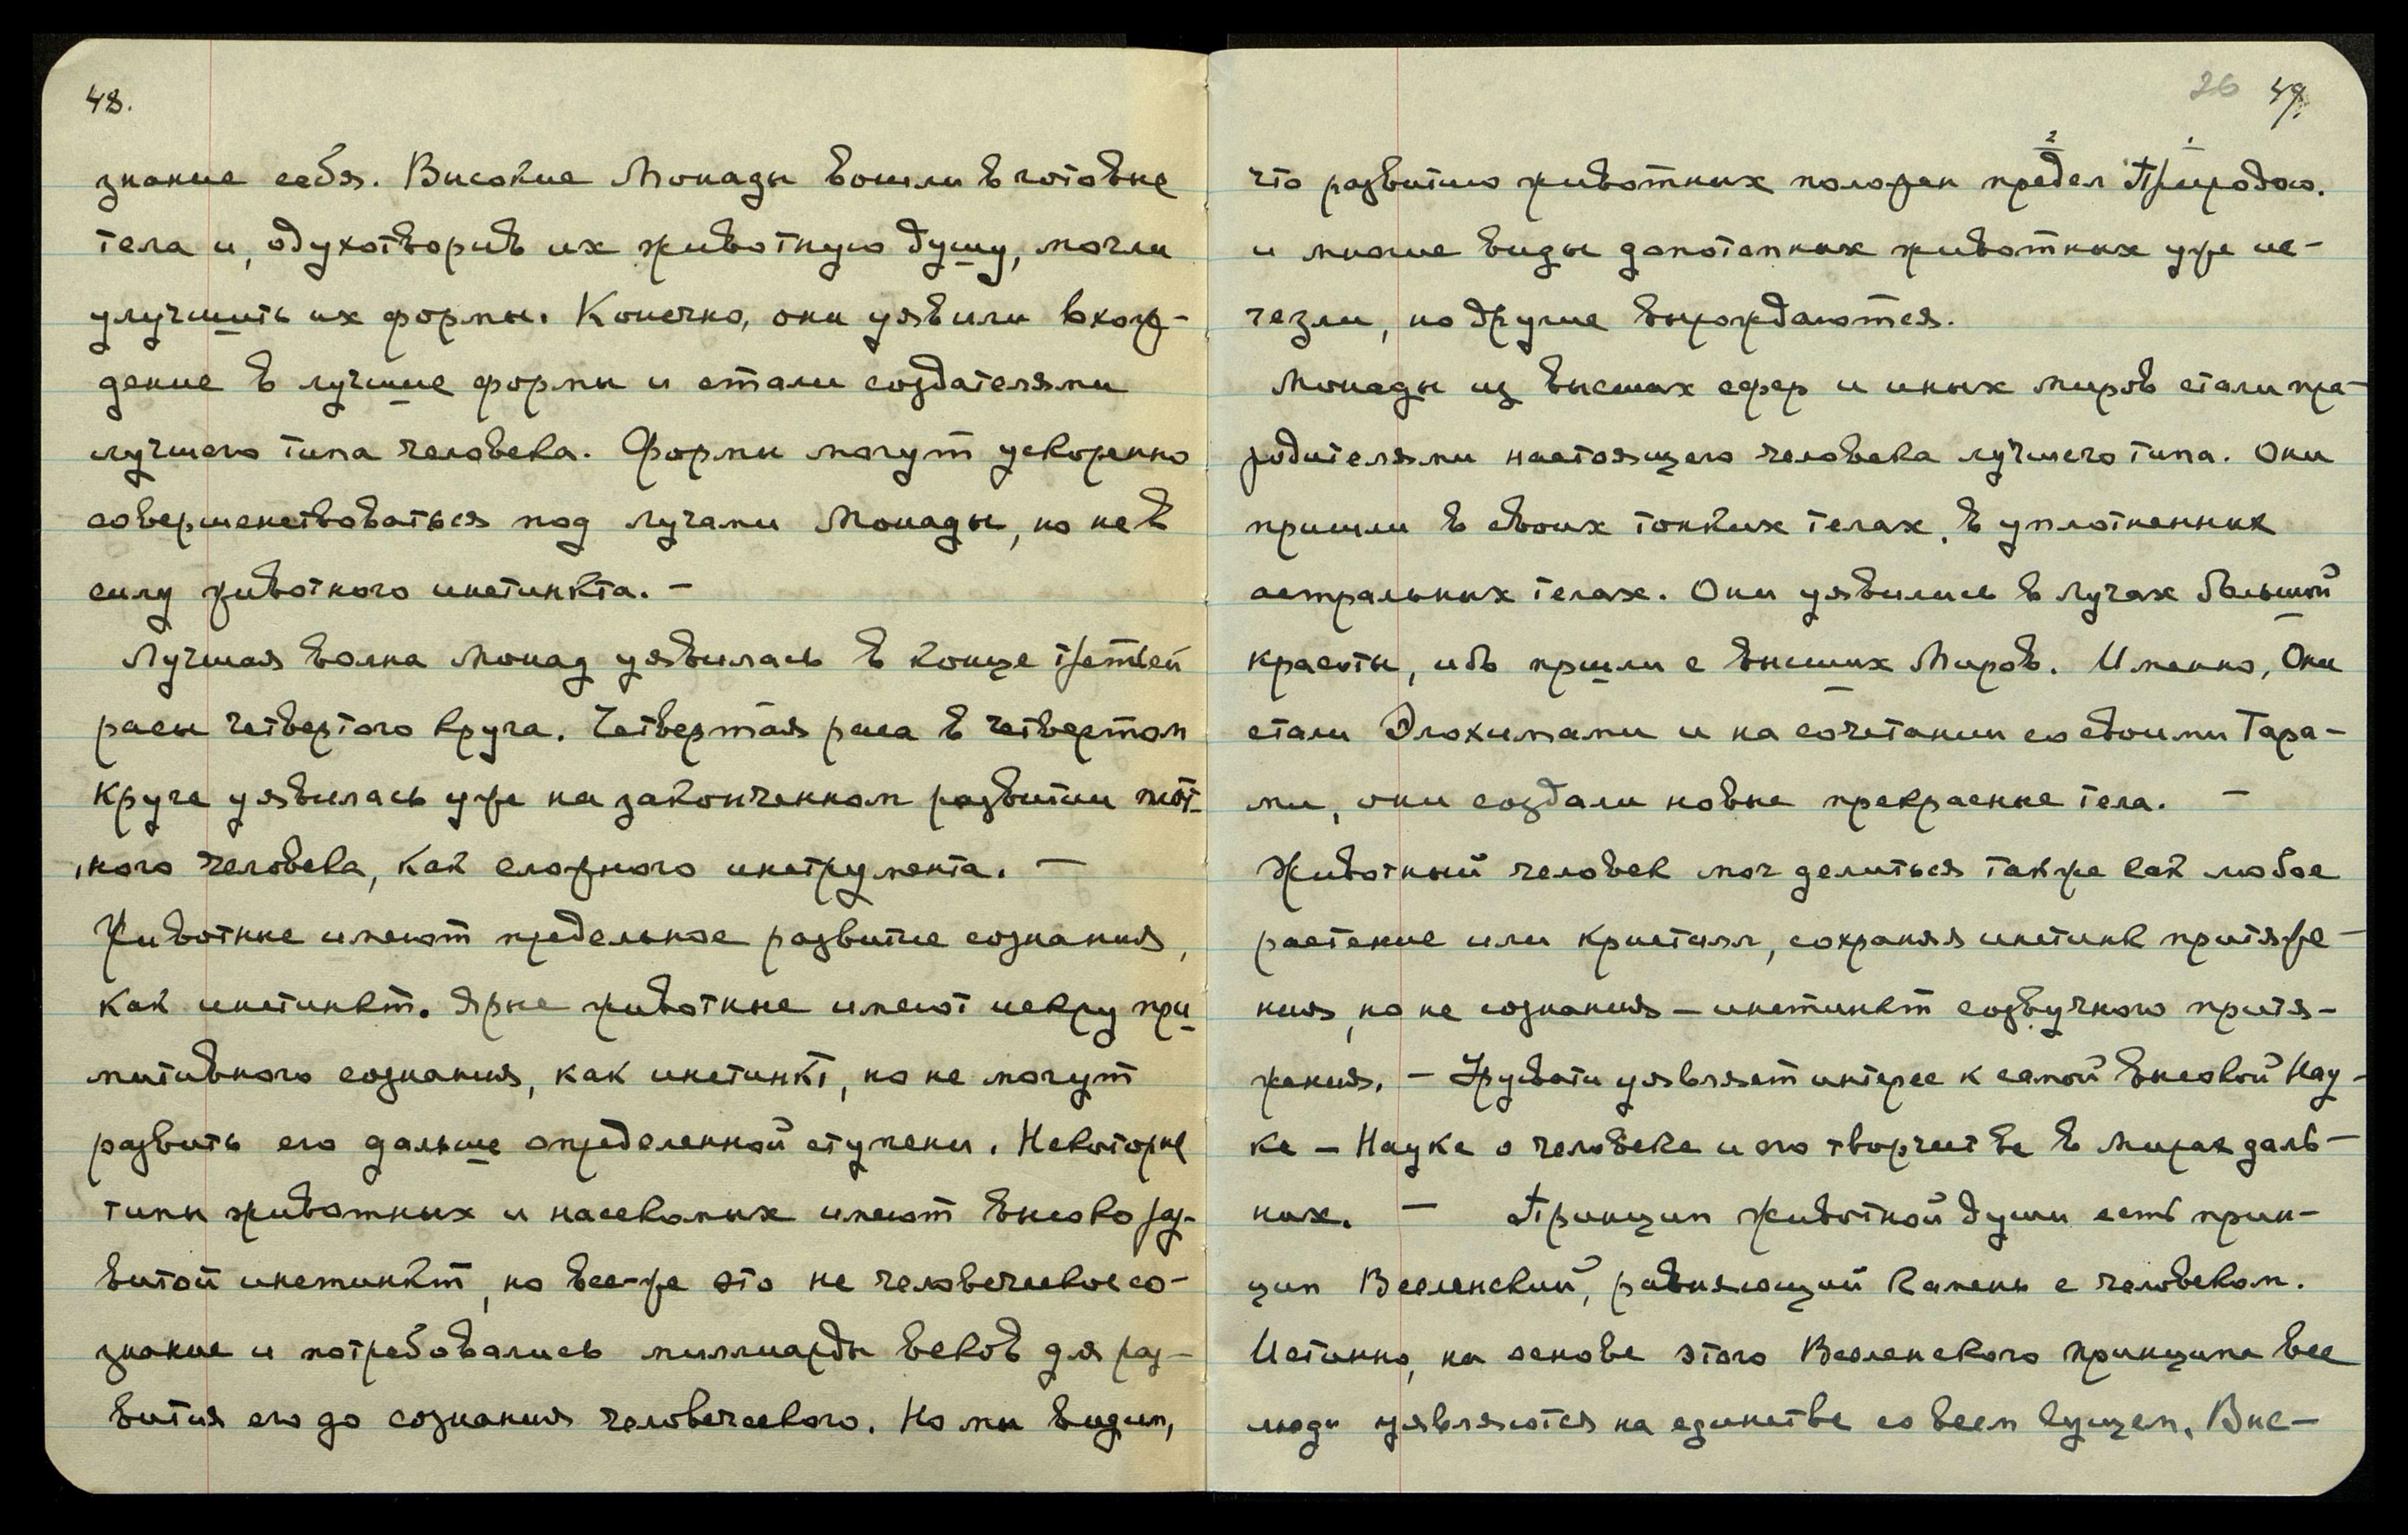 48.
знание себя. Высокие Монады вошли в готовые
тела и, одухотворив их животную душу, могли
улучшить их формы. Конечно, они уявили вхож-
дение в лучшие формы и стали создателями
лучшего типа человека. Формы могут ускоренно
совершенствоваться под лучами Монады, но не в
силу животного инстинкта. –
Лучшая волна Монад уявилась в конце третьей
расы четвертого круга. Четвертая раса в четвертом
Круге уявилась уже на законченном развитии плот-
ного человека, как сложного инструмента. —
Животные имеют предельное развитие сознания,
как инстинкт. Ярые животные имеют искру при
митивного сознания, как инстинкт, но не могут
развить его дальше определенной ступени. Некоторые
типы животных и насекомых имеют высоко раз-
витой инстинкт, но все-же это не человеческое со-
знание и потребовались миллиарды веков для раз-
вития его до сознания человеческого. Но мы видим,
26 49.
2 1
что развитию животных положен предел Природою.
и многие виды допотопных животных уже ис-
чезли, но другие вырождаются.
Монады из высших сфер и иных миров стали пра-
родителями настоящего человека лучшего типа. Они
пришли в своих тонких телах, в уплотненных
астральных телах. Они уявились в лучах большой
красоты, ибо пришли с высших Миров. Именно, Они
стали Элохимами и на сочетании со своими Тара-
ми, они создали новые прекрасные тела. —
Животный человек мог делиться также как любое
растение или кристалл, сохраняя инстинк притяже-
ния, но не сознания – инстинкт созвучного притя-
жения. – Урусвати уявляет интерес к самой высокой Нау-
ке – Науке о человеке и его творчестве в мирах даль-
них. — Принцип животной души есть прин-
цип Вселенский, равняющий камень с человеком.
Истинно, на основе этого Вселенского принципа все
люди уявляются на единстве со всем сущем. Выс-